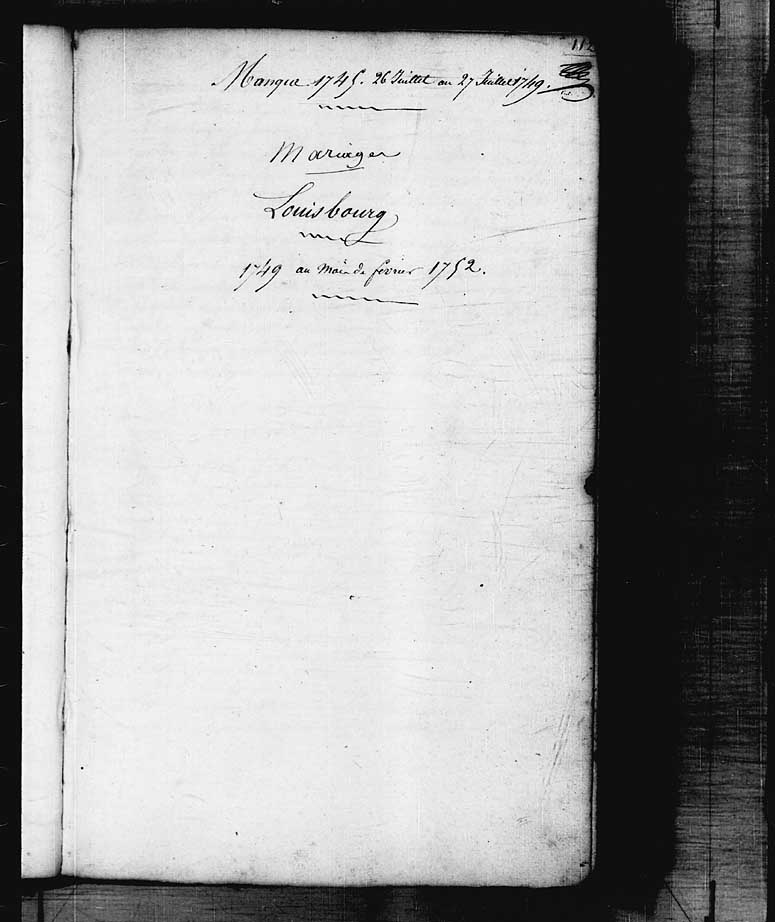 112
Manque 1745. 26 Juillet au 27 Juillet 1749.
Mariages
Louisbourg
1749 au Mois de février 1752.